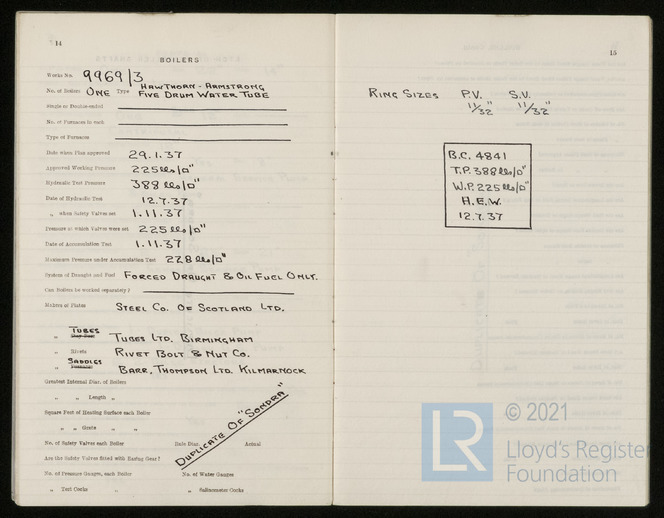 14
BOILERS
Works No. 9969/3
No. of Boilers ONE Type HAWTHORN-ARMSTRONG FIVE DRUM WATER TUBE
Single or Double-ended
No. of Furnaces in each
Type of Furnaces
Date when Plan approved 29.1.37
Approved Working Pressure 225 lbs/□"
Hydraulic Test Pressure 388 lbs/□"
Date of Hydraulic Test 12.7.37
„ when Safety Valves set 1.11.37
Pressure at which Valves were set 225 lbs/□"
Date of Accumulation Test 1.11.37
Maximum Pressure under Accumulation Test 228 lbs/□"
System of Draught and Fuel FORCED DRAUGHT & OIL FUEL ONLY.
Can Boilers be worked separately?
Makers of Plates STEEL CO. OF SCOTLAND LTD.
„ TUBES TUBES LTD. BIRMINGHAM
„ Rivets RIVET BOLT & NUT CO.
„ SADDLES BARR, THOMPSON LTD. KILMARNOCK
Greatest Internal Diar. of Boilers
„ „ Length „
Square Feet of Heating Surface each Boiler
„ „ Grate „ „
No. of Safety Valves each Boiler Rule Diar. Actual
Are the Safety Valves fitted with Easing Gear?
No. of Pressure Gauges, each Boiler No. of Water Gauges
„ Test Cocks „ „ Salinometer Cocks
DUPLICATE OF "SONDRA"
15
RING SIZES P.V. S.V.
11/32" 11/32"
B.C. 4841
T.P. 388 lbs/□"
W.P. 225 lbs/□"
H.E.W.
12.7.37
LR
© 2021
Lloyd's Register
Foundation